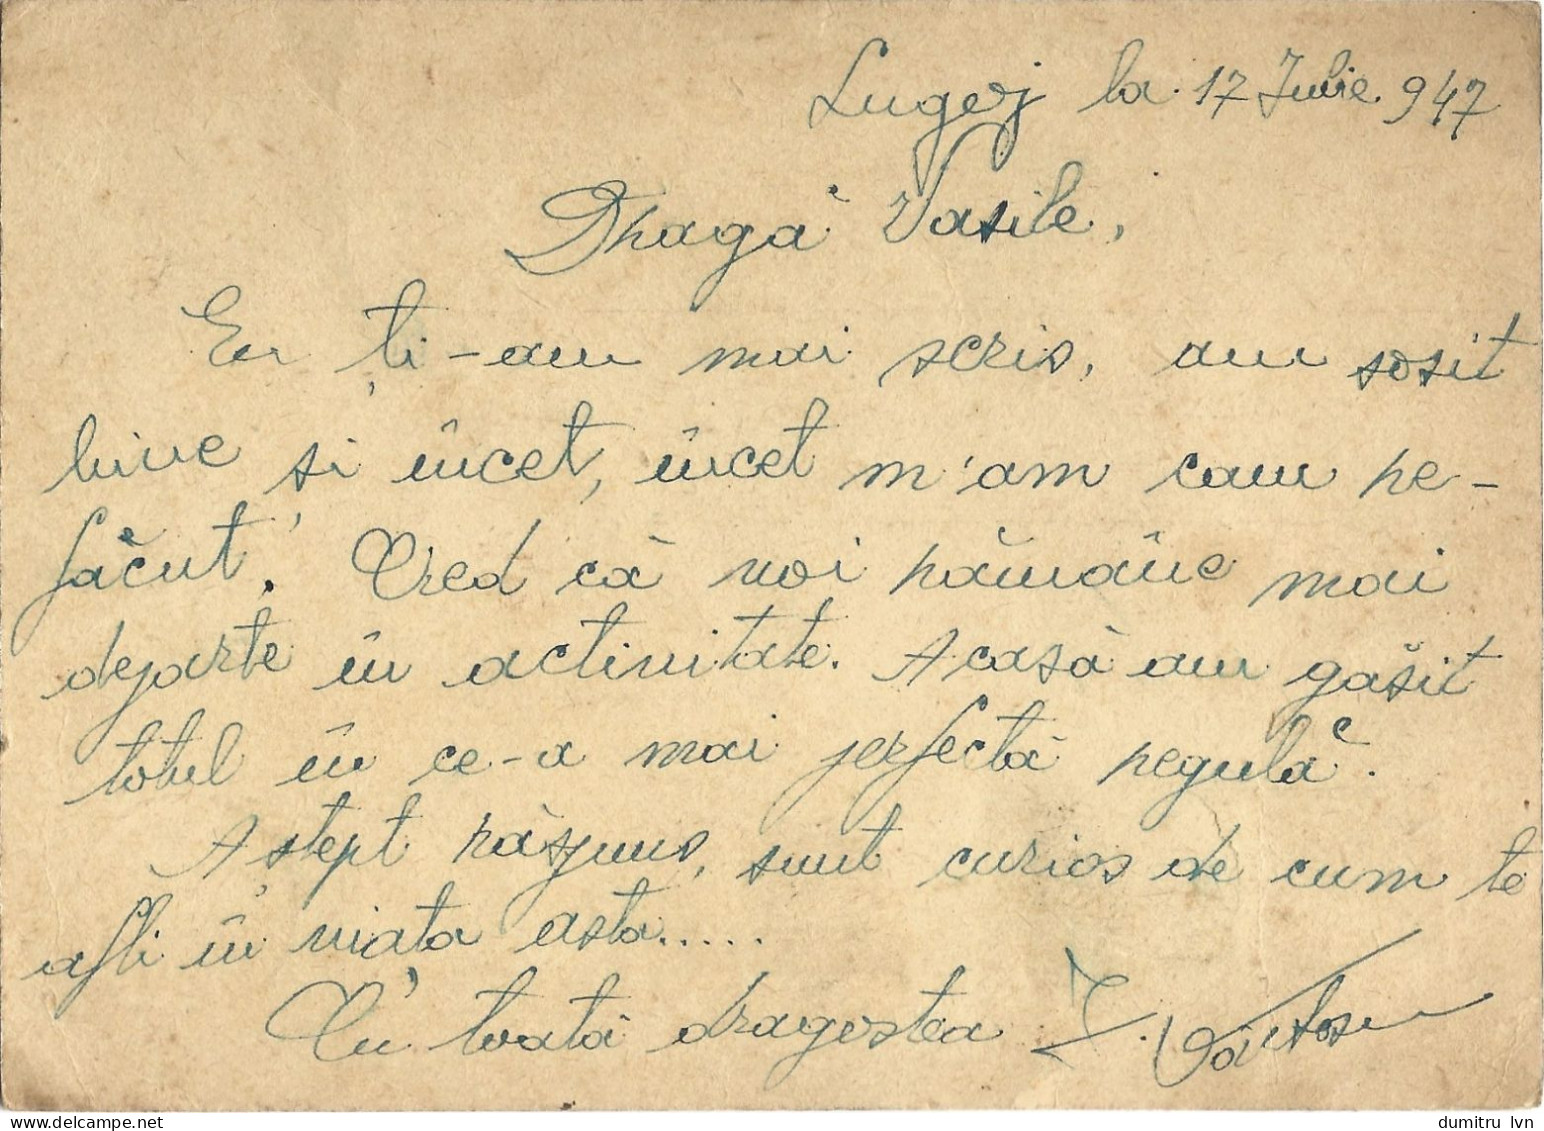 Lugoj la 17 Iulie 947
Dragă Vasile,
Eu ți-am mai scris, am sosit
bine și încet, încet m'am cam re-
făcut. Cred că voi rămâne mai
departe în activitate. Acasă am găsit
totul în ce-a mai perfectă regulă.
Aștept răspuns, sunt curios de cum te
afli în viața asta.....
Cu toată dragostea I.
dumitru lvn
© delcampe.net